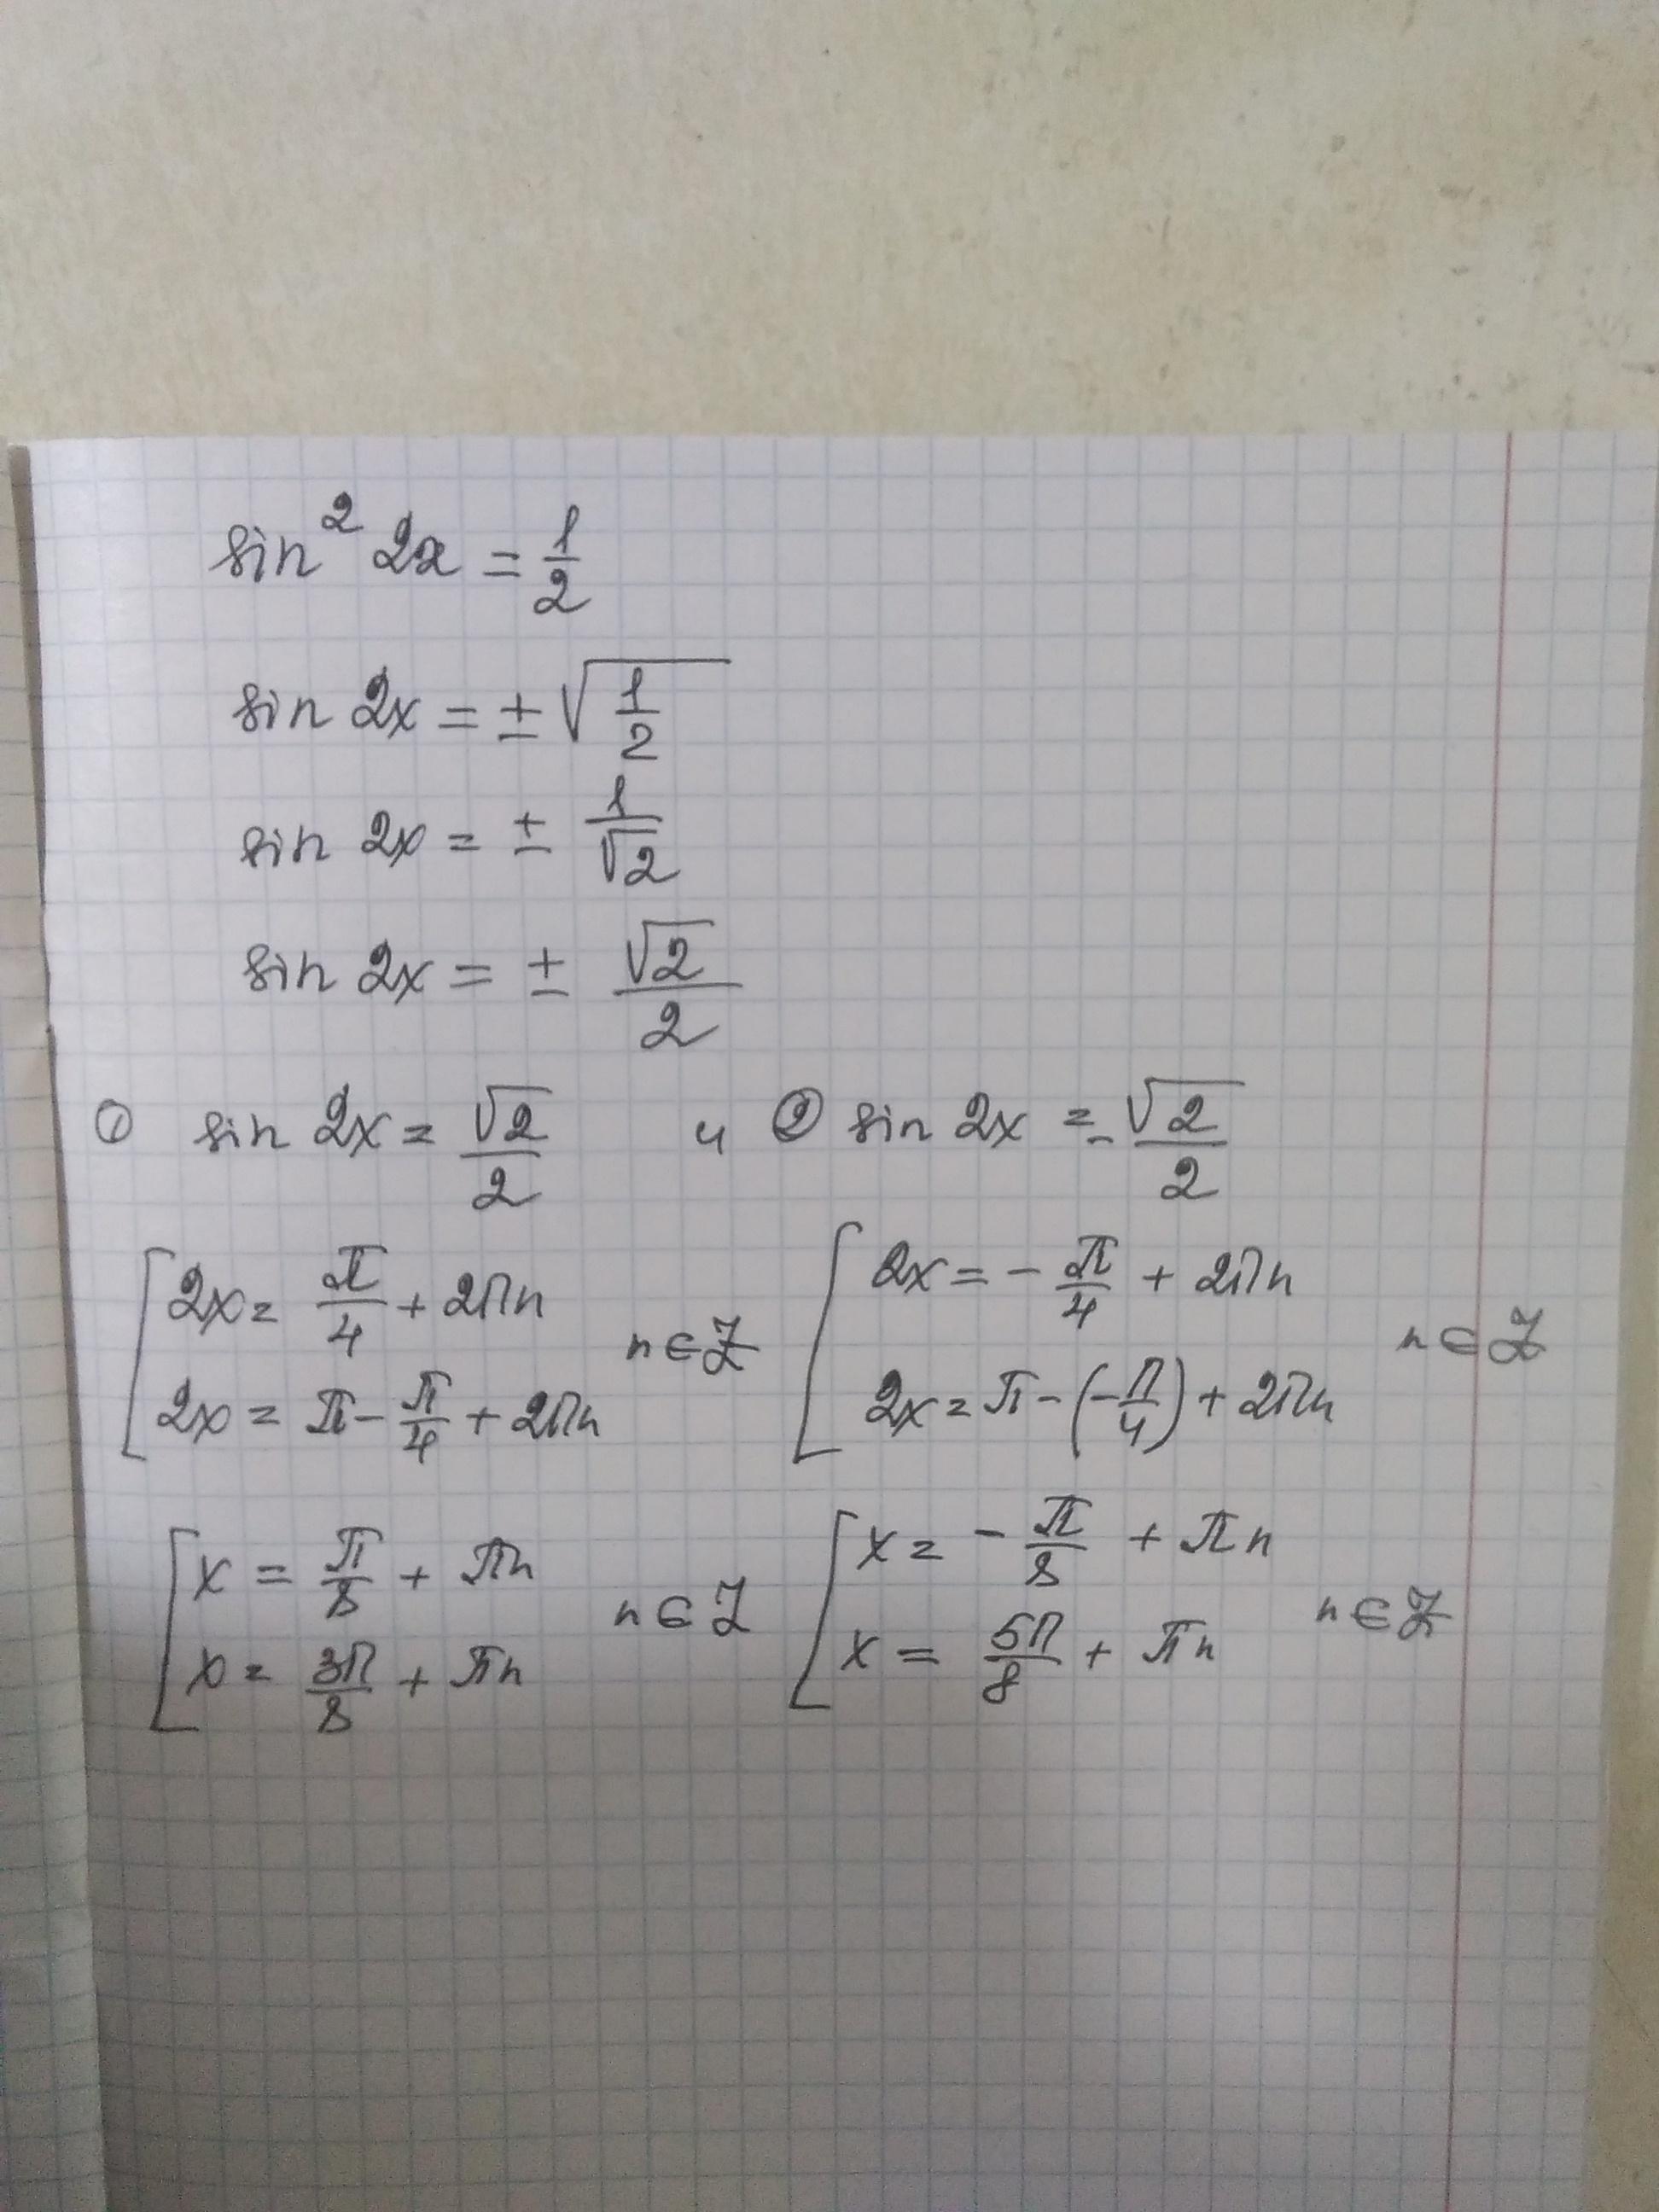 sin² 2x = 1/2
sin 2x = ± √(1/2)
sin 2x = ± 1/√2
sin 2x = ± √2/2
① sin 2x = √2/2 и ② sin 2x = - √2/2
[ 2x = π/4 + 2πn
2x = π - π/4 + 2πn n ∈ Z
[ 2x = - π/4 + 2πn
2x = π - (-π/4) + 2πn n ∈ Z
[ x = π/8 + πn
x = 3π/8 + πn n ∈ Z
[ x = - π/8 + πn
x = 5π/8 + πn n ∈ Z